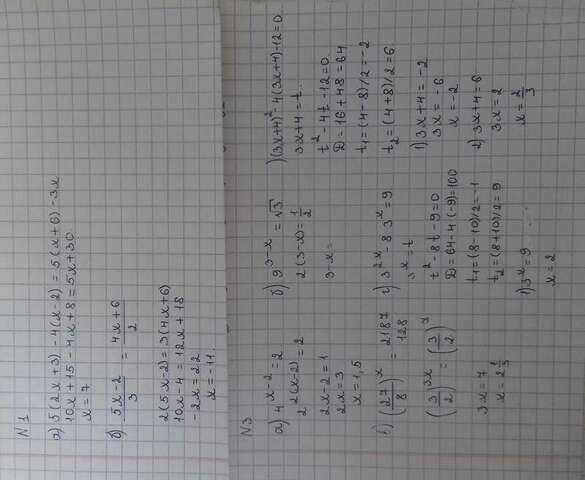 N1
а) 5(2x+3) - 4(x-2) = 5(x+6) - 3x
10x+15-4x+8=5x+30
x=7
б) (5x-2)/3 = (4x+6)/2
2(5x-2)=3(4x+6)
10x-4=12x+18
-2x=22
x=-11.
N3
а) 4^(x-2)=2
2^(2(x-2))=2
2x-2=1
2x=3
x=1,5
б) 9^(3-x) = √3
2(3-x)=1/2
3-x=
)(3x+4)²-4(3x+4)-12=0
3x+4=t
t²-4t-12=0
D=16+48=64
t₁=(4-8)/2=-2
t₂=(4+8)/2=6
1) 3x+4=-2
3x=-6
x=-2
2) 3x+4=6
3x=2
x=2/3
в) (27/8)^x = 2187/128
(3/2)^(3x) = (3/2)^7
3x=7
x=2 1/3
г) 3^(2x)-8 3^x=9
3^x=t
t²-8t-9=0
D=64-4(-9)=100
t₁=(8-10)/2=-1
t₂=(8+10)/2=9
1) 3^x=9
x=2